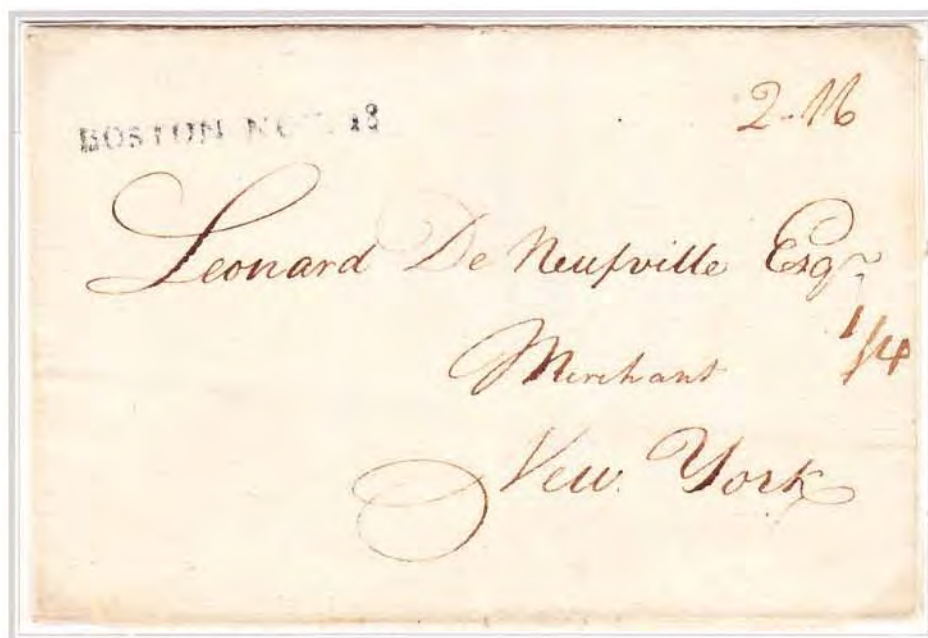 BOSTON NOV 18
2-16
Leonard De Neufville Esqr
1/4
Merchant
New York